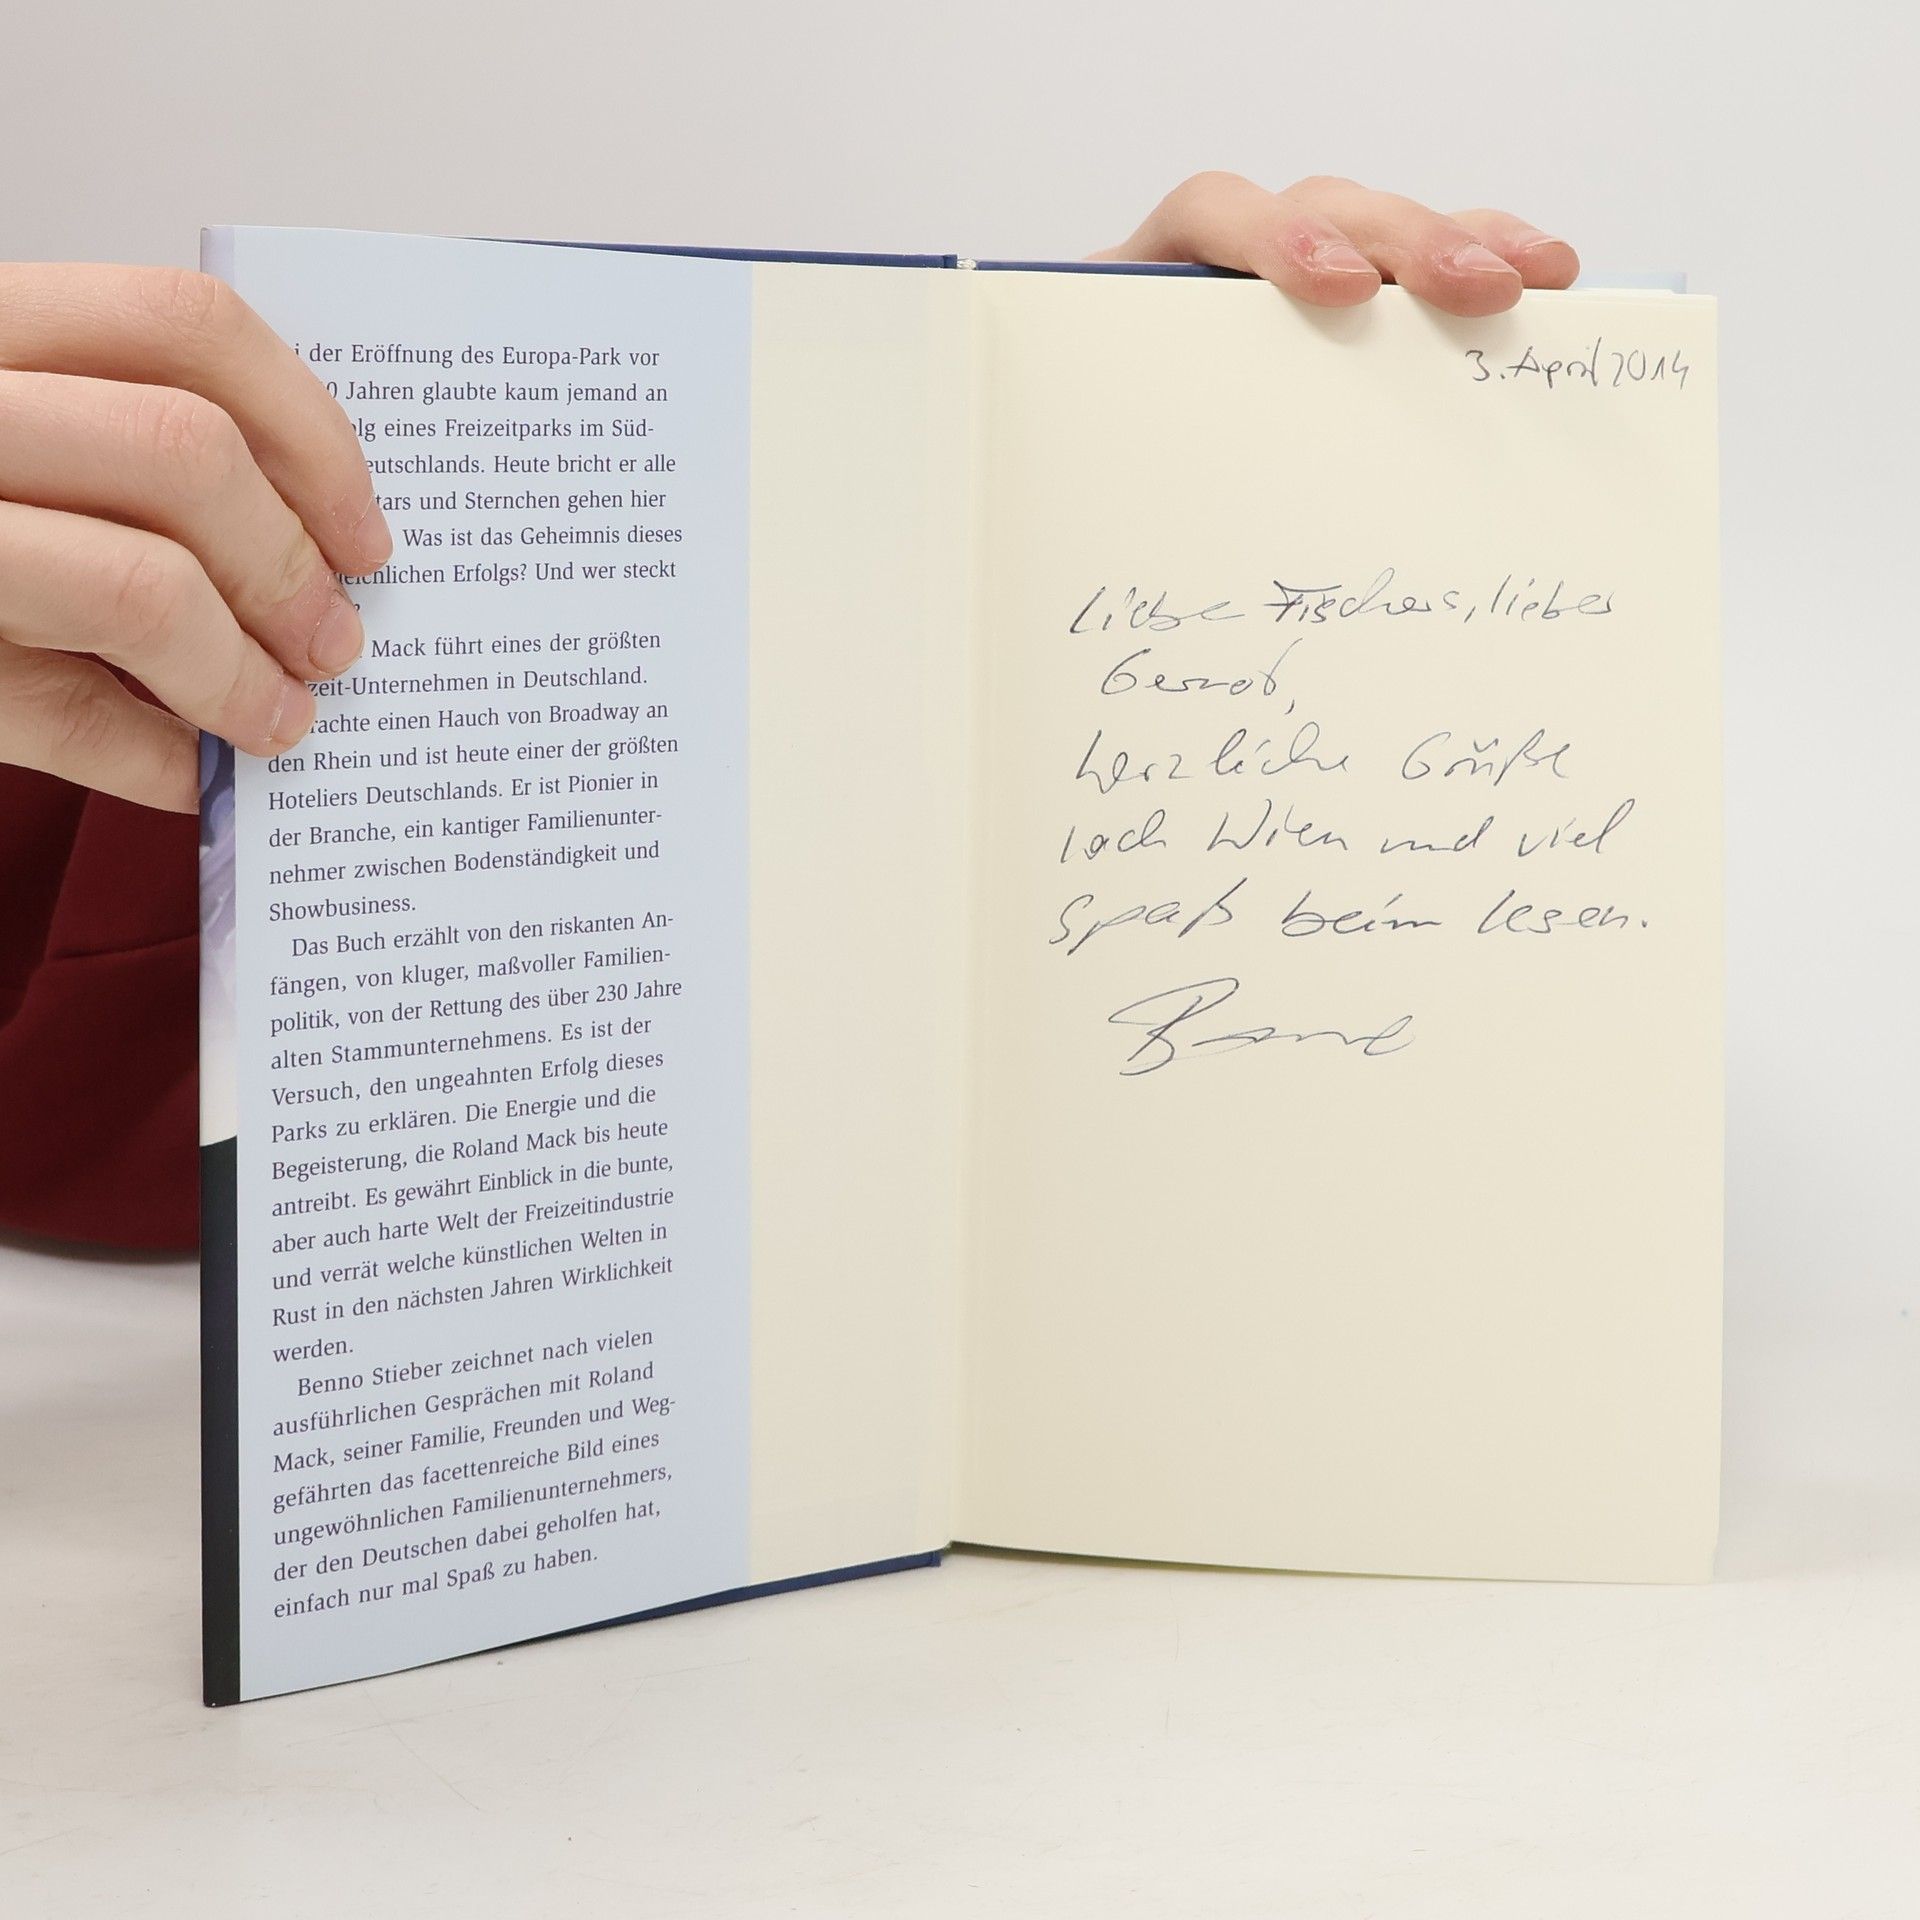 der Eröffnung des Europa-Park vor
0 Jahren glaubte kaum jemand an
lg eines Freizeitparks im Süd-
eutschlands. Heute bricht er alle
tars und Sternchen gehen hier
Was ist das Geheimnis dieses
eichlichen Erfolgs? Und wer steckt
Mack führt eines der größten
zeit-Unternehmen in Deutschland.
rachte einen Hauch von Broadway an
den Rhein und ist heute einer der größten
Hoteliers Deutschlands. Er ist Pionier in
der Branche, ein kantiger Familienunter-
nehmer zwischen Bodenständigkeit und
Showbusiness.
Das Buch erzählt von den riskanten An-
fängen, von kluger, maßvoller Familien-
politik, von der Rettung des über 230 Jahre
alten Stammunternehmens. Es ist der
Versuch, den ungeahnten Erfolg dieses
Parks zu erklären. Die Energie und die
Begeisterung, die Roland Mack bis heute
antreibt. Es gewährt Einblick in die bunte,
aber auch harte Welt der Freizeitindustrie
und verrät welche künstlichen Welten in
Rust in den nächsten Jahren Wirklichkeit
werden.
Benno Stieber zeichnet nach vielen
ausführlichen Gesprächen mit Roland
Mack, seiner Familie, Freunden und Weg-
gefährten das facettenreiche Bild eines
ungewöhnlichen Familienunternehmers,
der den Deutschen dabei geholfen hat,
einfach nur mal Spaß zu haben.
3. April 2014
Liebe Fischers, lieber
Gernot,
herzliche Grüße
nach Wien und viel
Spaß beim Lesen.
Benno